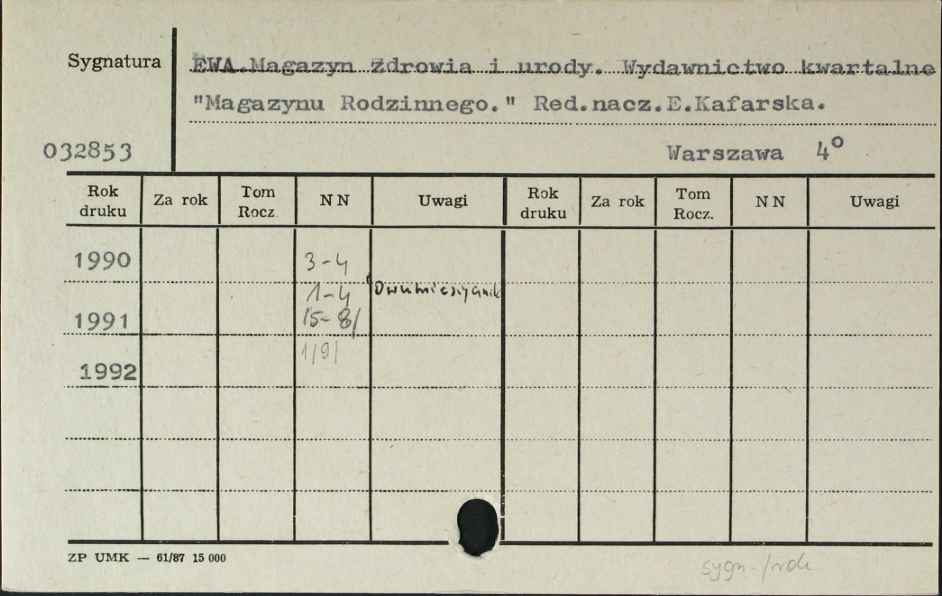 Sygnatura
EWA.Magazyn zdrowia i urody. Wydawnictwo kwartalne
"Magazynu Rodzinnego." Red.nacz.E.Kafarska.
032853
Warszawa 4°
Rok druku Za rok Tom Rocz. N N Uwagi Rok druku Za rok Tom Rocz. N N Uwagi
1990 3-4
1-4 Dwumiesięcznik
1991 15-8/
1992 1/9/
ZP UMK — 61/87 15 000